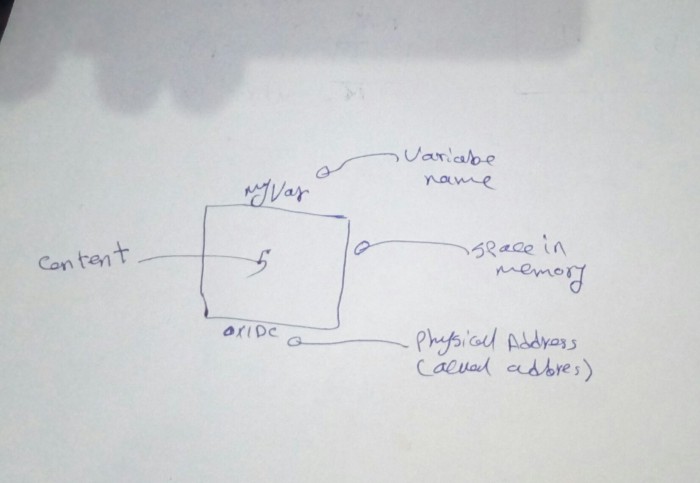 Variabe
name
myVar
Content
5
space in
memory
0X1DC
Physical Address
(actual addres)